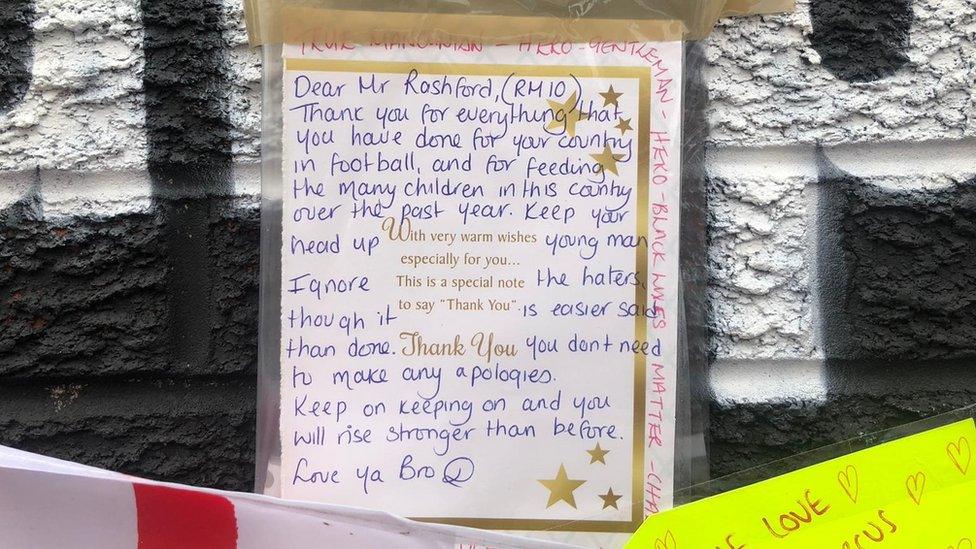 TRUE MANCUNIAN - HERO - GENTLEMAN - HERO - BLACK LIVES MATTER -
Dear Mr Rashford, (RM10)
Thank you for everything that
you have done for your country
in football, and for feeding
the many children in this country
over the past year. Keep your
head up With very warm wishes young man
especially for you...
Ignore This is a special note the haters,
to say "Thank You"
though it is easier said
than done. Thank You You dont need
to make any apologies.
Keep on keeping on and you
will rise stronger than before.
Love ya Bro
LOVE